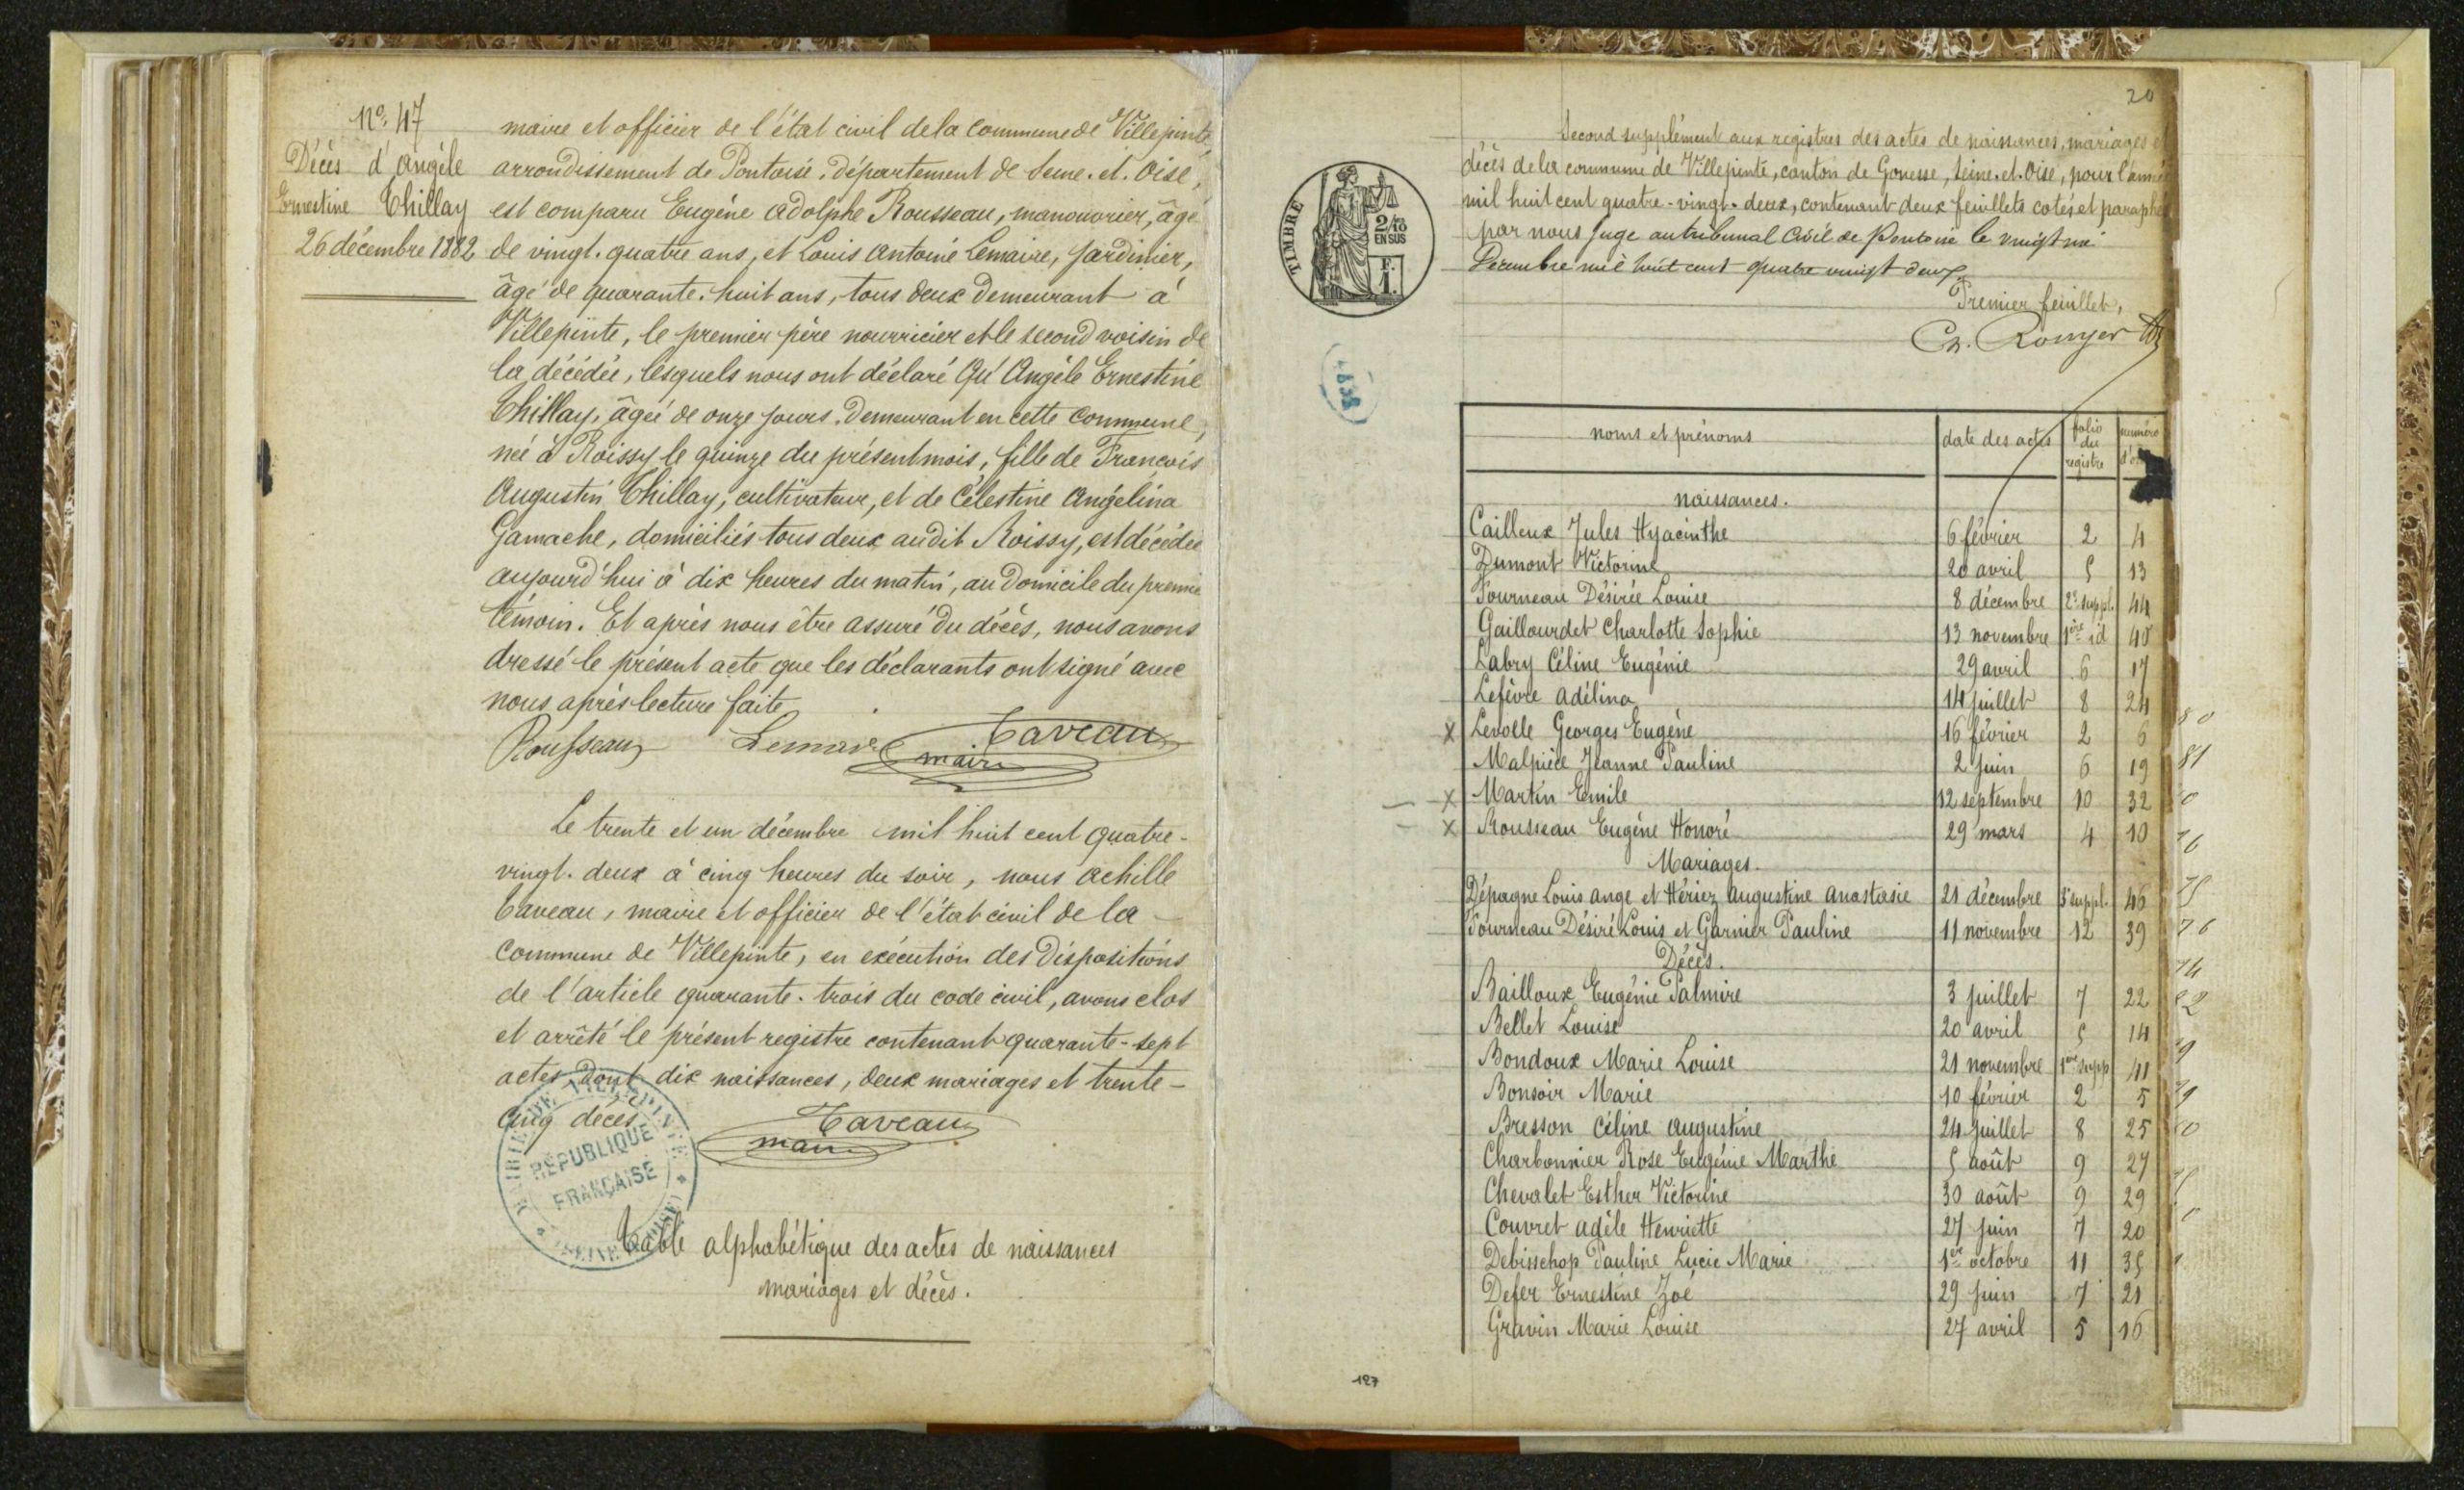 N° 47
Décès d'Angèle
Ernestine Thillay
26 décembre 1882
maire et officier de l'état civil de la commune de Villepinte,
arrondissement de Pontoise, département de Seine-et-Oise,
est comparu Eugène Adolphe Rousseau, manouvrier, âgé
de vingt-quatre ans, et Louis Antoine Lemaire, jardinier,
âgé de quarante-huit ans, tous deux demeurant à
Villepinte, le premier père nourricier et le second voisin de
la décédée, lesquels nous ont déclaré qu'Angèle Ernestine
Thillay, âgée de onze jours, demeurant en cette commune,
née à Roissy le quinze du présent mois, fille de François
Augustin Thillay, cultivateur, et de Célestine Angélina
Gamache, domiciliés tous deux audit Roissy, est décédée
aujourd'hui à dix heures du matin, au domicile du premier
témoin. Et après nous être assuré du décès, nous avons
dressé le présent acte que les déclarants ont signé avec
nous après lecture faite
Rousseau Lemaire Taveau
maire
Le trente et un décembre mil huit cent quatre-
vingt-deux à cinq heures du soir, nous Achille
Taveau, maire et officier de l'état civil de la
commune de Villepinte, en exécution des dispositions
de l'article quarante-trois du code civil, avons clos
et arrêté le présent registre contenant quarante-sept
actes dont dix naissances, deux mariages et trente-
cinq décès.
Taveau
maire
RÉPUBLIQUE
FRANÇAISE
Table alphabétique des actes de naissances
mariages et décès.
20
Second supplément aux registres des actes de naissances, mariages et
décès de la commune de Villepinte, canton de Gonesse, Seine-et-Oise, pour l'année
mil huit cent quatre-vingt-deux, contenant deux feuillets cotés et paraphés
par nous Juge au tribunal civil de Pontoise le vingt
Décembre mil huit cent quatre vingt deux
Premier feuillet,
Ch. Rouyer
TIMBRE
2/10
EN SUS
F.
1.
noms et prénoms | date des actes | folio du registre | numéro
naissances.
Cailleux Jules Hyacinthe | 6 février | 2 | 4
Dumont Victorine | 20 avril | 5 | 13
Fourneau Désirée Louise | 8 décembre | 2e suppl. | 44
Gaillourdet Charlotte Sophie | 13 novembre | 1er id | 40
Labry Céline Eugénie | 29 avril | 6 | 17
Lefèvre Adélina | 14 juillet | 8 | 24
x Levolle Georges Eugène | 16 février | 2 | 6
Malpièce Jeanne Pauline | 2 juin | 6 | 19
x Martin Emile | 12 septembre | 10 | 32
x Rousseau Eugène Honoré | 29 mars | 4 | 10
Mariages.
Dépagne Louis Ange et Hériez Augustine Anastasie | 21 décembre | suppl. | 46
Fourneau Désiré Louis et Garnier Pauline | 11 novembre | 12 | 39
Décès.
Bailloux Eugénie Palmire | 3 juillet | 7 | 22
Bellet Louise | 20 avril | 5 | 14
Bondoux Marie Louise | 21 novembre | 1er supp | 41
Bonsoir Marie | 10 février | 2 | 5
Bresson Céline Augustine | 24 juillet | 8 | 25
Charbonnier Rose Eugénie Marthe | 5 août | 9 | 27
Chevalet Esther Victorine | 30 août | 9 | 29
Couvret Adèle Henriette | 27 juin | 7 | 20
Debisschop Pauline Lucie Marie | 1er octobre | 11 | 35
Defer Ernestine Zoé | 29 juin | 7 | 21
Gravin Marie Louise | 27 avril | 5 | 16
127